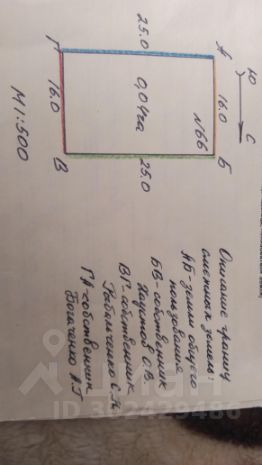 Ю
С
А
Б
В
Г
25.0
16.0
25.0
16.0
№66
0,04га
М 1:500
Описание границ
смежных земель:
АБ-земли общего
пользования
БВ-собственник
О.В.
ВГ-собственник
Рыбальченко С.
ГА-собственник
Богаченко А.Г